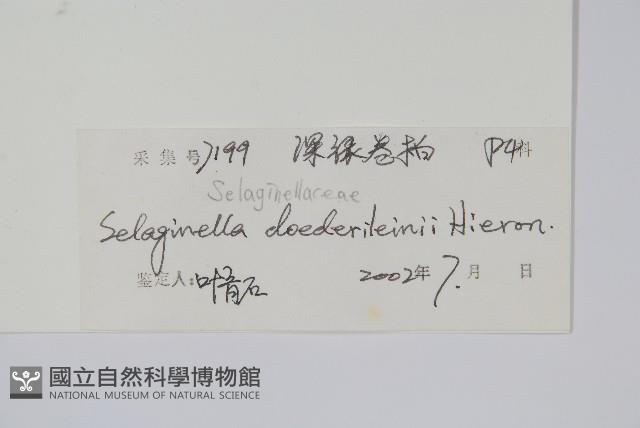 采集号 7199 深绿卷柏 P4科
Selaginellaceae
Selaginella doederileinii Hieron.
鉴定人: 叶育石 2002年 7. 月 日
國立自然科學博物館
NATIONAL MUSEUM OF NATURAL SCIENCE